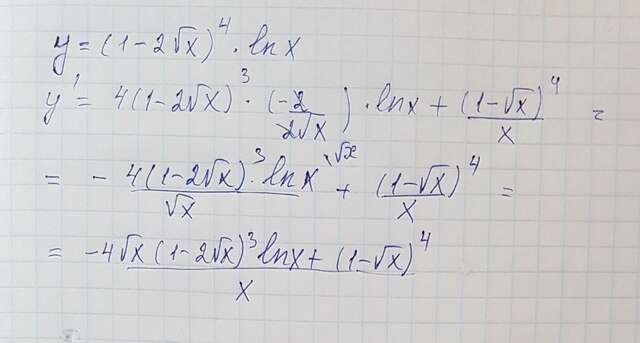 y = (1-2√x)^4 · ln x
y' = 4(1-2√x)^3 · (-2/2√x) · ln x + (1-√x)^4/x =
= - 4(1-2√x)^3 · ln x^{\√x}/√x + (1-√x)^4/x =
= -4√x(1-2√x)^3 ln x + (1-√x)^4/x